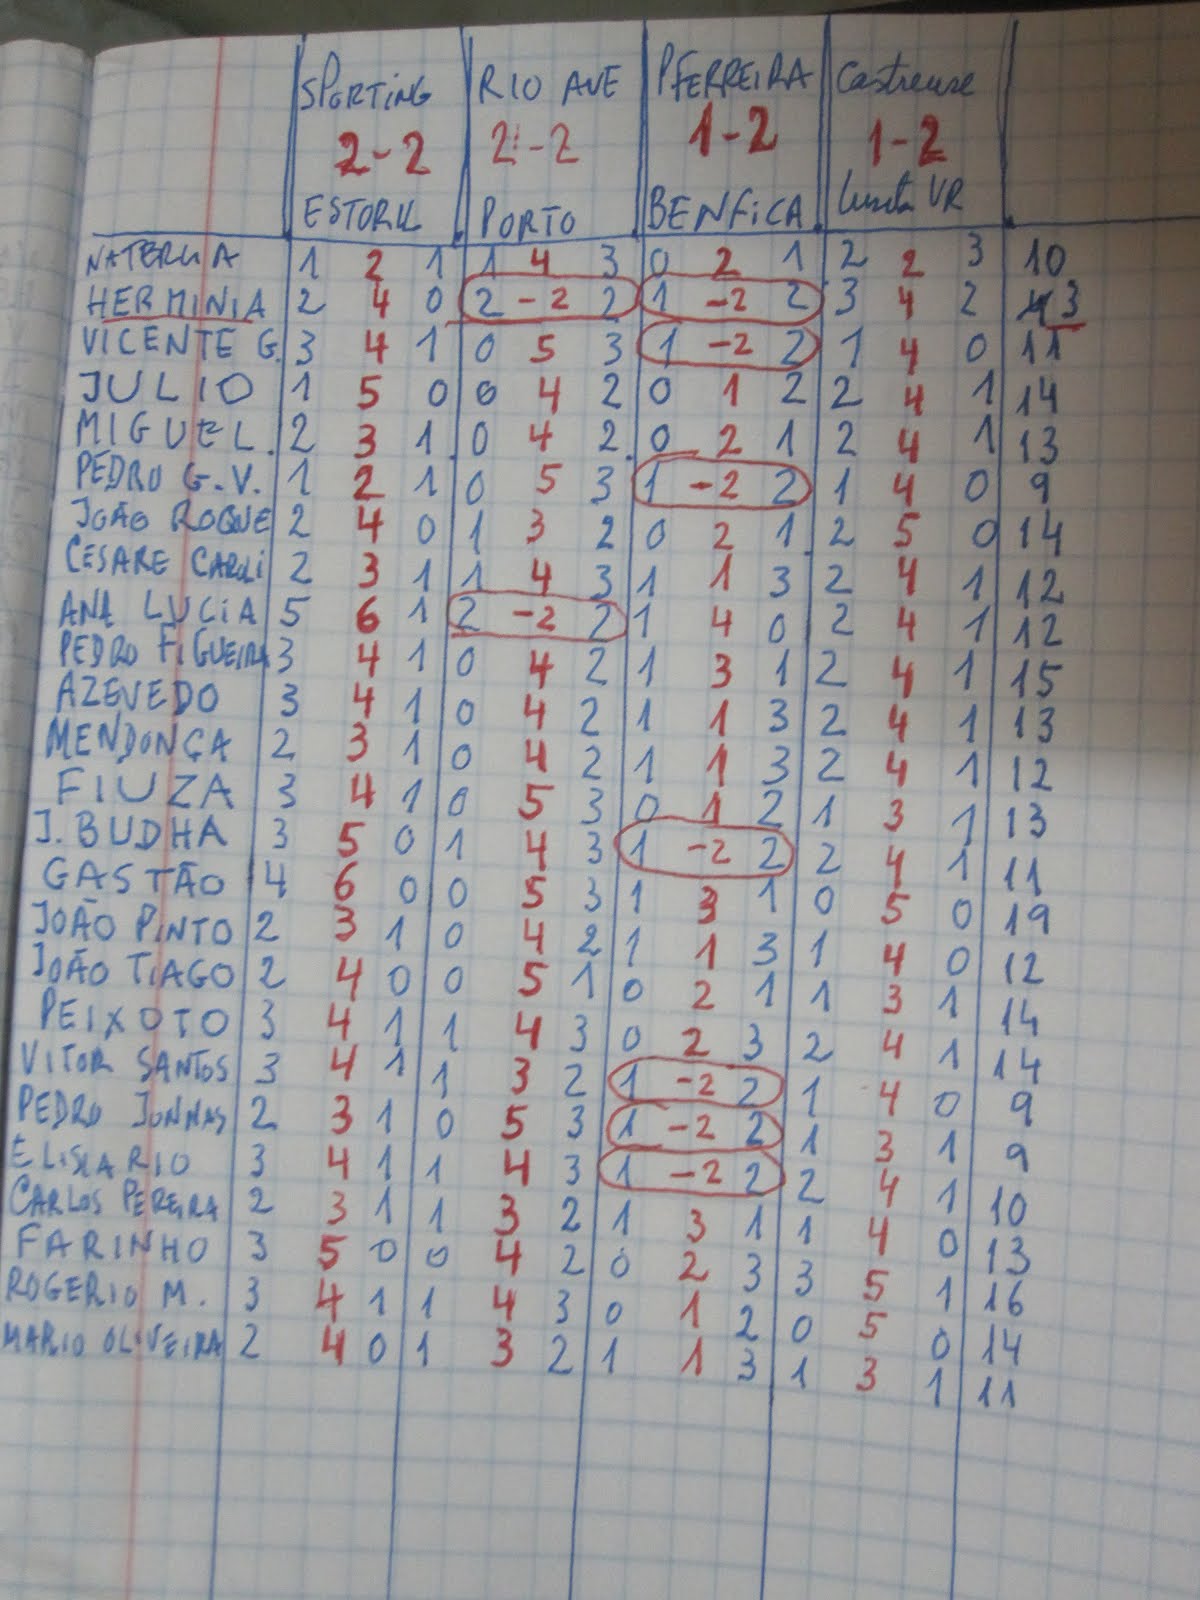 SPORTING RIO AVE PFERREIRA Castrense
2-2 2-2 1-2 1-2
ESTORIL PORTO BENFICA VR
NATERCIA 1 2 1 1 4 3 0 2 1 2 2 3 10
HERMINIA 2 4 0 2 -2 2 1 -2 2 3 4 2 3
VICENTE G. 3 4 1 0 5 3 1 -2 2 1 4 0 11
JULIO 1 5 0 0 4 2 0 1 2 2 4 1 14
MIGUEL. 2 3 1 0 4 2 0 2 1 2 4 1 13
PEDRO G.V. 1 2 1 0 5 3 1 -2 2 1 4 0 9
JOÃO ROQUE 2 4 0 1 3 2 0 2 1 2 5 0 14
CESARE CAROLI 2 3 1 1 4 3 1 1 3 2 4 1 12
ANA LUCIA 5 6 1 2 -2 2 1 4 0 2 4 1 12
PEDRO FIGUEIRA 3 4 1 0 4 2 1 3 1 2 4 1 15
AZEVEDO 3 4 1 0 4 2 1 1 3 2 4 1 13
MENDONÇA 2 3 1 0 4 2 1 1 3 2 4 1 12
FIUZA 3 4 1 0 5 3 0 1 2 1 3 1 13
J. BUDHA 3 5 0 1 4 3 1 -2 2 2 4 1 11
GASTÃO 4 6 0 0 5 3 1 3 1 0 5 0 19
JOÃO PINTO 2 3 1 0 4 2 1 1 3 1 4 0 12
JOÃO TIAGO 2 4 0 0 5 1 0 2 1 1 3 1 14
PEIXOTO 3 4 1 1 4 3 0 2 3 2 4 1 14
VITOR SANTOS 3 4 1 1 3 2 1 -2 2 1 4 0 9
PEDRO JONNAS 2 3 1 0 5 3 1 -2 2 1 3 1 9
ELISIARIO 3 4 1 1 4 3 1 -2 2 2 4 1 10
CARLOS PEREIRA 2 3 1 1 3 2 1 3 1 1 4 0 13
FARINHO 3 5 0 0 4 2 0 2 3 3 5 1 16
ROGERIO M. 3 4 1 1 4 3 0 1 2 0 5 0 14
MARIO OLIVEIRA 2 4 0 1 3 2 1 1 3 1 3 1 11